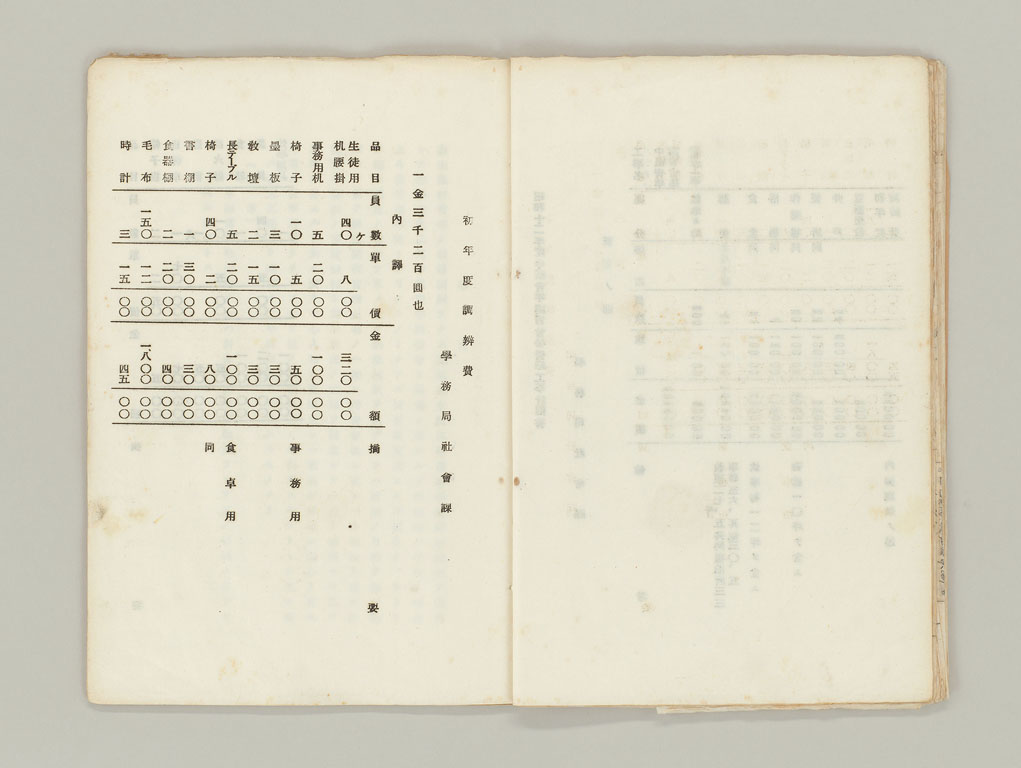 初年度調辨費
學務局社會課
一金三千二百圓也
內譯
品目 員數 單價 金額 摘要
生徒用机腰掛 四〇ケ 八 〇〇 三二〇 〇〇
事務用机 五 二〇 〇〇 一〇〇 〇〇
椅子 一〇 五 〇〇 五〇 〇〇 事務用
墨板 三 一〇 〇〇 三〇 〇〇
敎壇 二 一五 〇〇 三〇 〇〇
長テーブル 五 二〇 〇〇 一〇〇 〇〇 食卓用
椅子 四〇 二 〇〇 八〇 〇〇 同
書棚 一 三〇 〇〇 三〇 〇〇
食器棚 二 二〇 〇〇 四〇 〇〇
毛布 一五〇 一二 〇〇 一、八〇〇 〇〇
時計 三 一五 〇〇 四五 〇〇